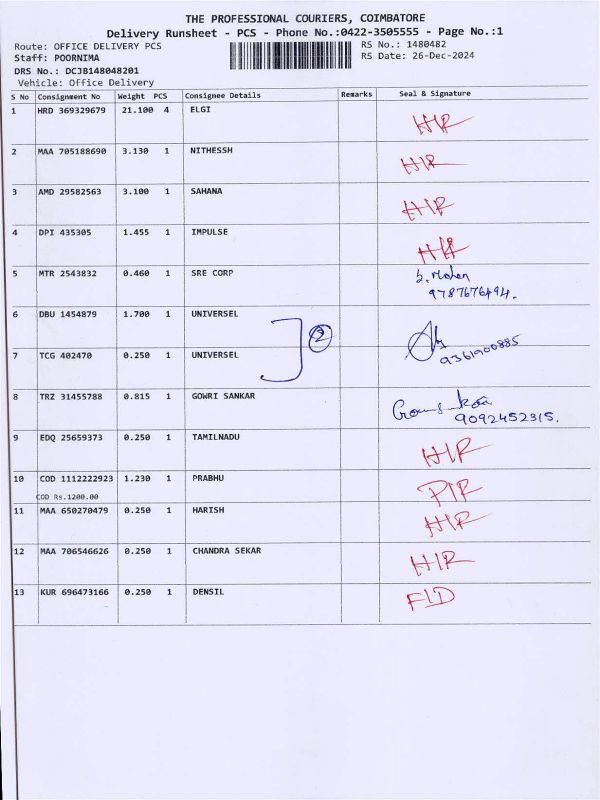 THE PROFESSIONAL COURIERS, COIMBATORE
Delivery Runsheet - PCS - Phone No.:0422-3505555 - Page No.:1
Route: OFFICE DELIVERY PCS RS No.: 1480482
Staff: POORNIMA RS Date: 26-Dec-2024
DRS No.: DCJB148048201
Vehicle: Office Delivery
S No Consignment No Weight PCS Consignee Details Remarks Seal & Signature
1 HRD 369329679 21.100 4 ELGI HIR
2 MAA 705188690 3.130 1 NITHESSH HIR
3 AMD 29582563 3.100 1 SAHANA HIR
4 DPI 435305 1.455 1 IMPULSE HIR
5 MTR 2543832 0.460 1 SRE CORP S. Mohan
9787676494.
6 DBU 1454879 1.700 1 UNIVERSEL 2
7 TCG 402470 0.250 1 UNIVERSEL 9361900885
8 TRZ 31455788 0.815 1 GOWRI SANKAR
9092452315.
9 EDQ 25659373 0.250 1 TAMILNADU HIR
10 COD 1112222923 1.230 1 PRABHU PIR
COD Rs.1200.00
11 MAA 650270479 0.250 1 HARISH HIR
12 MAA 706546626 0.250 1 CHANDRA SEKAR HIR
13 KUR 696473166 0.250 1 DENSIL FID